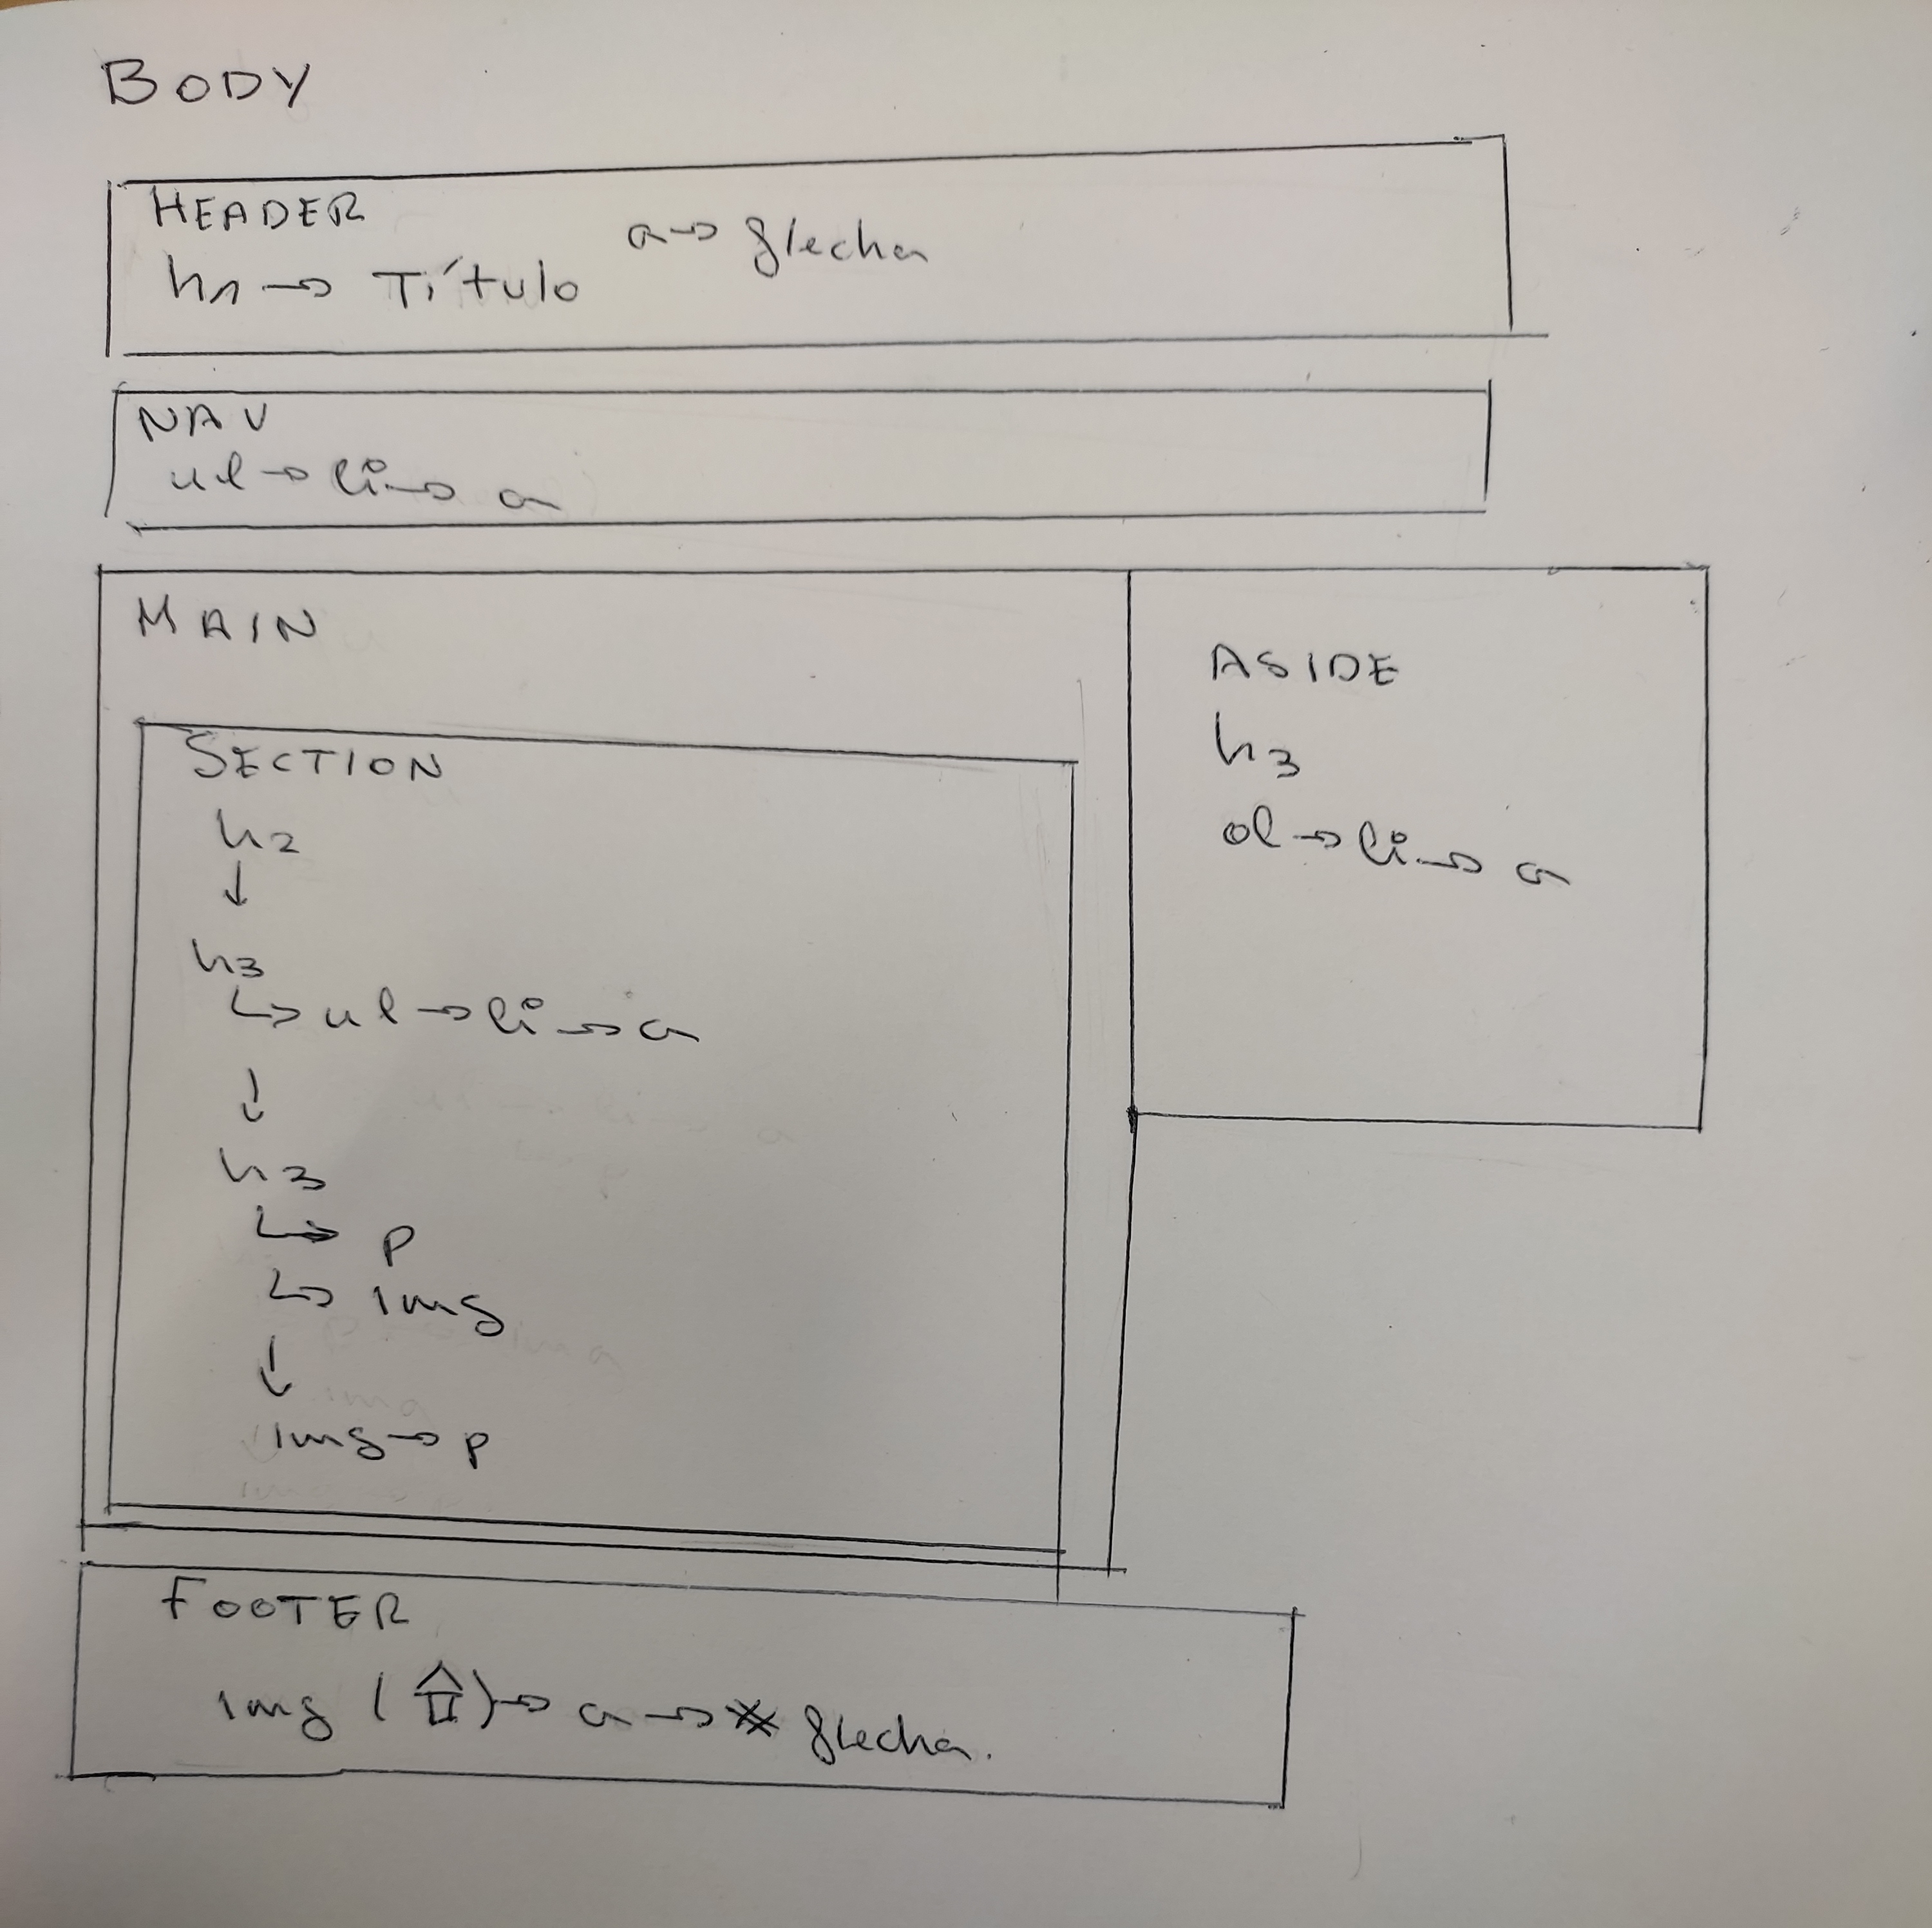 BODY
HEADER
a → flecha
h1 → Título
NAV
ul → li → a
MAIN
SECTION
h2
↓
h3
↳ ul → li → a
↓
h3
↳ p
↳ img
↓
img → p
ASIDE
h3
ol → li → a
FOOTER
img ( ) → a → flecha.